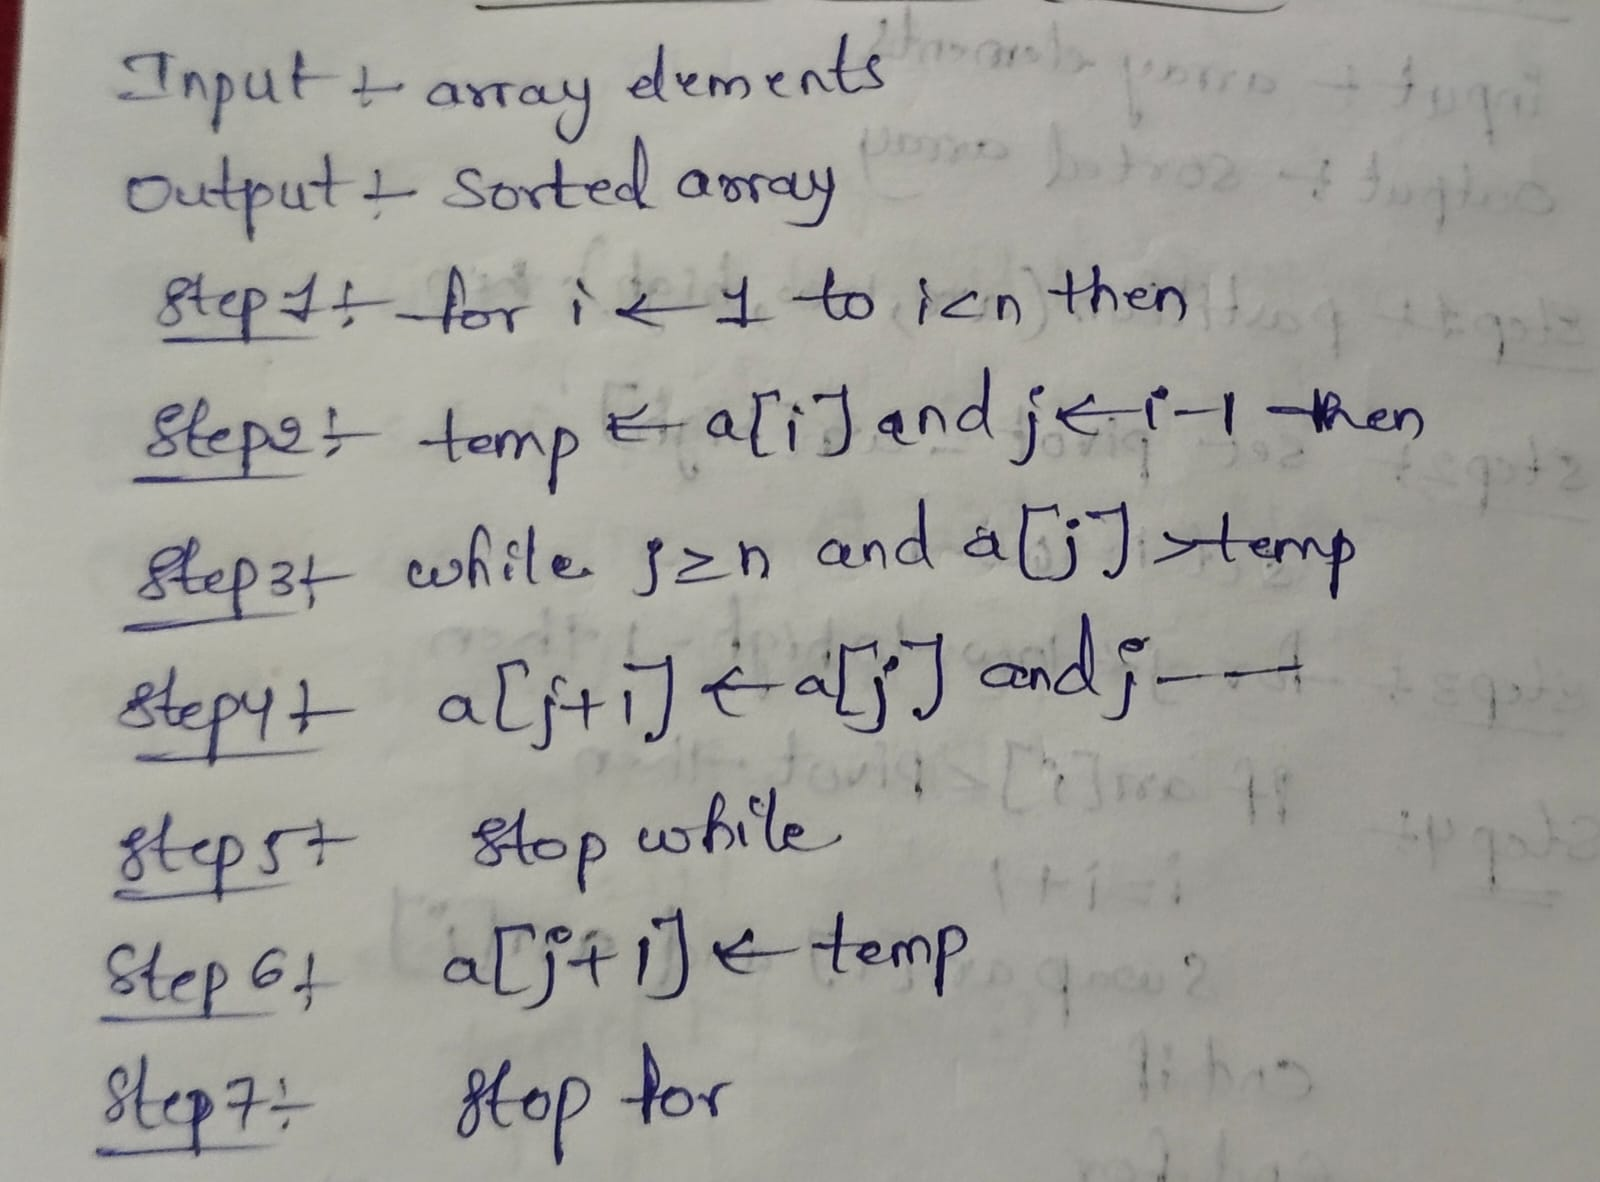 Input :- array elements
Output :- Sorted array
Step 1 :- for i ← 1 to i<n then
Step2 :- temp ← a[i] and j ← i-1 then
Step3 :- while j≥n and a[j] >temp
Step4 :- a[j+i] ← a[j] and j--
Step5 :- Stop while
Step 6 :- a[j+1] ← temp
Step7 :- Stop for